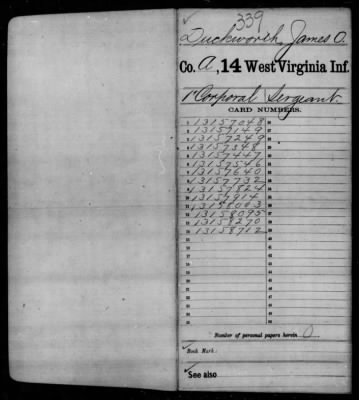 339
Duckworth, James O.
Co. A, 14 West Virginia Inf.
1" Corporal Sergeant.
CARD NUMBERS.
1 13157048 26
2 13157149 27
3 13157249 28
4 13157348 29
5 13157447 30
6 13157546 31
7 13157640 32
8 13157732 33
9 13157824 34
10 13157914 35
11 13158003 36
12 13158095 37
13 13158270 38
14 13158712 39
15 40
16 41
17 42
18 43
19 44
20 45
21 46
22 47
23 48
24 49
25 50
Number of personal papers herein 0
Book Mark:
See also